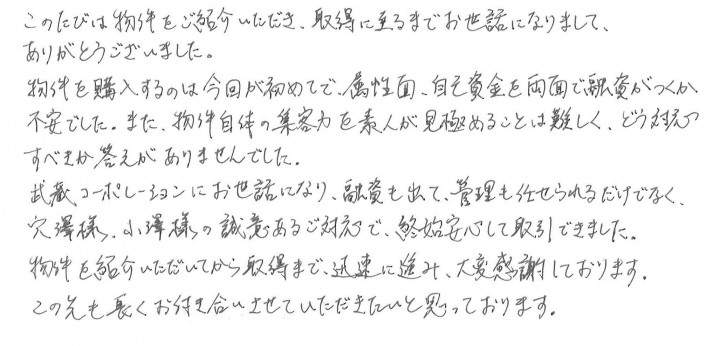 このたびは物件をご紹介いただき、取得に至るまでお世話になりまして、
ありがとうございました。
物件を購入するのは今回が初めてで、属性面、自己資金を両面で融資がつくか
不安でした。また、物件自体の集客力を素人が見極めることは難しく、どう対応
すべきか答えがありませんでした。
武蔵コーポレーションにお世話になり、融資も出て、管理も任せられるだけでなく、
穴澤様、小澤様の誠意あるご対応で、終始安心して取引できました。
物件を紹介いただいてから取得まで、迅速に進み、大変感謝しております。
この先も長くお付き合いさせていただきたいと思っております。